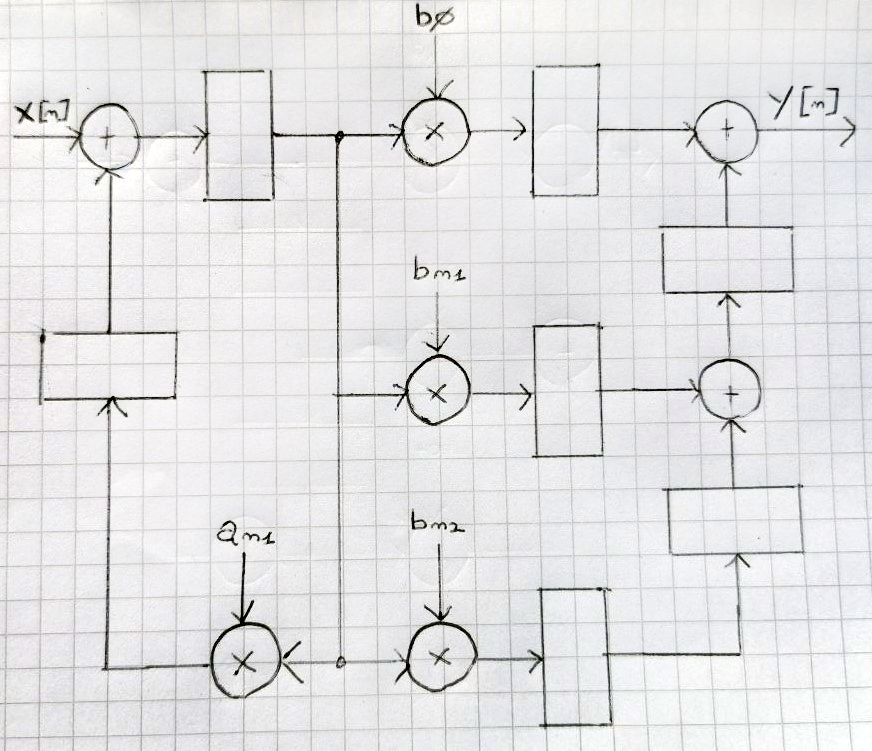 bø
x[n]
+
×
+
y[n]
bm1
×
+
am1
bm2
×
×